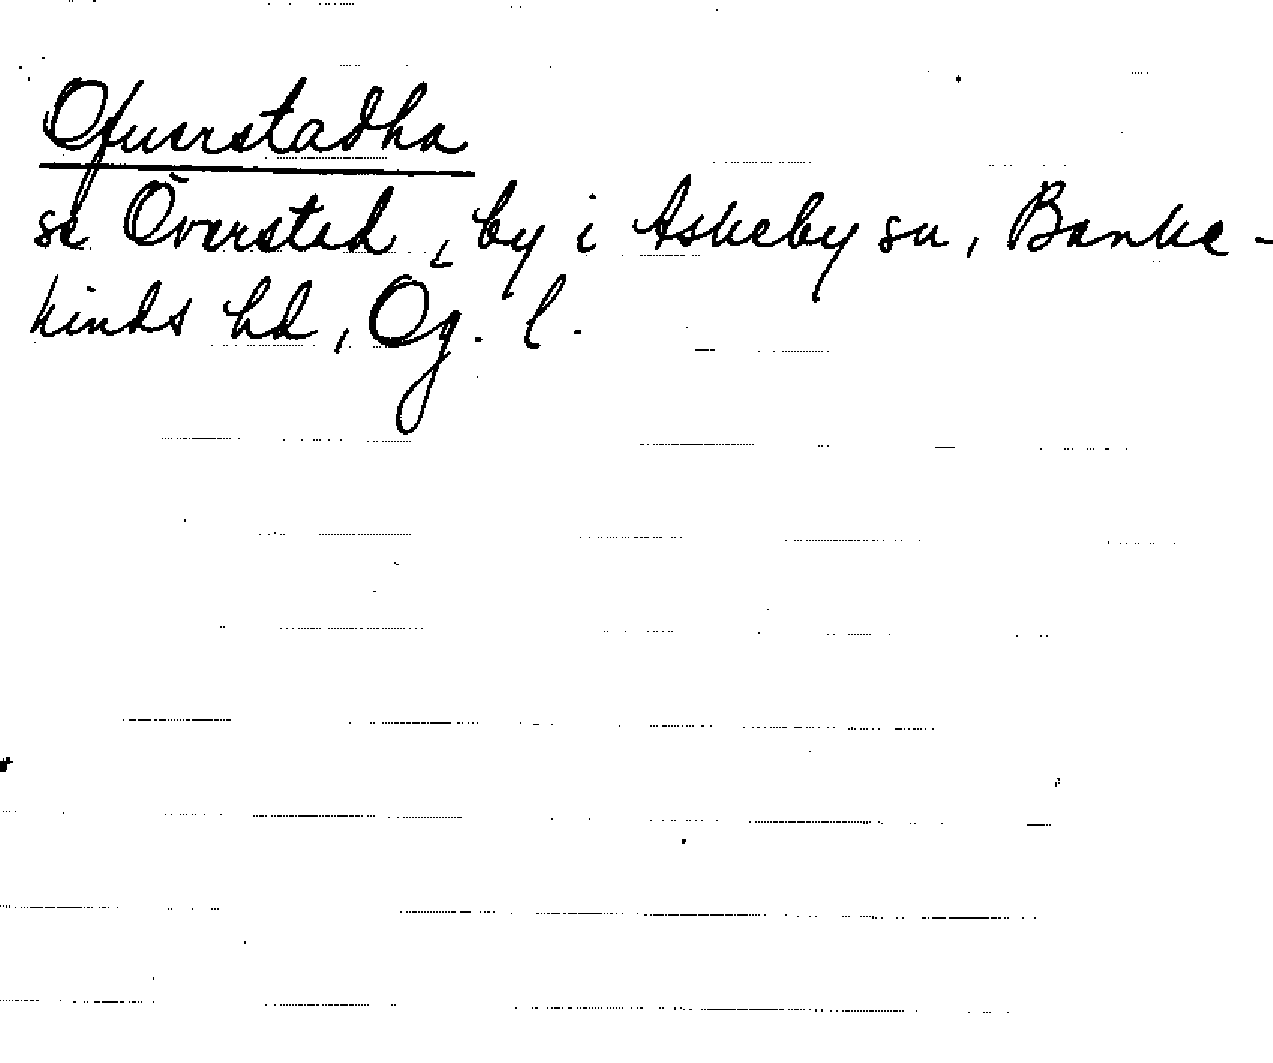 Ofuerstadha
se Överstad, by i Askeby sn, Banke-
kinds hd, Ög. l.